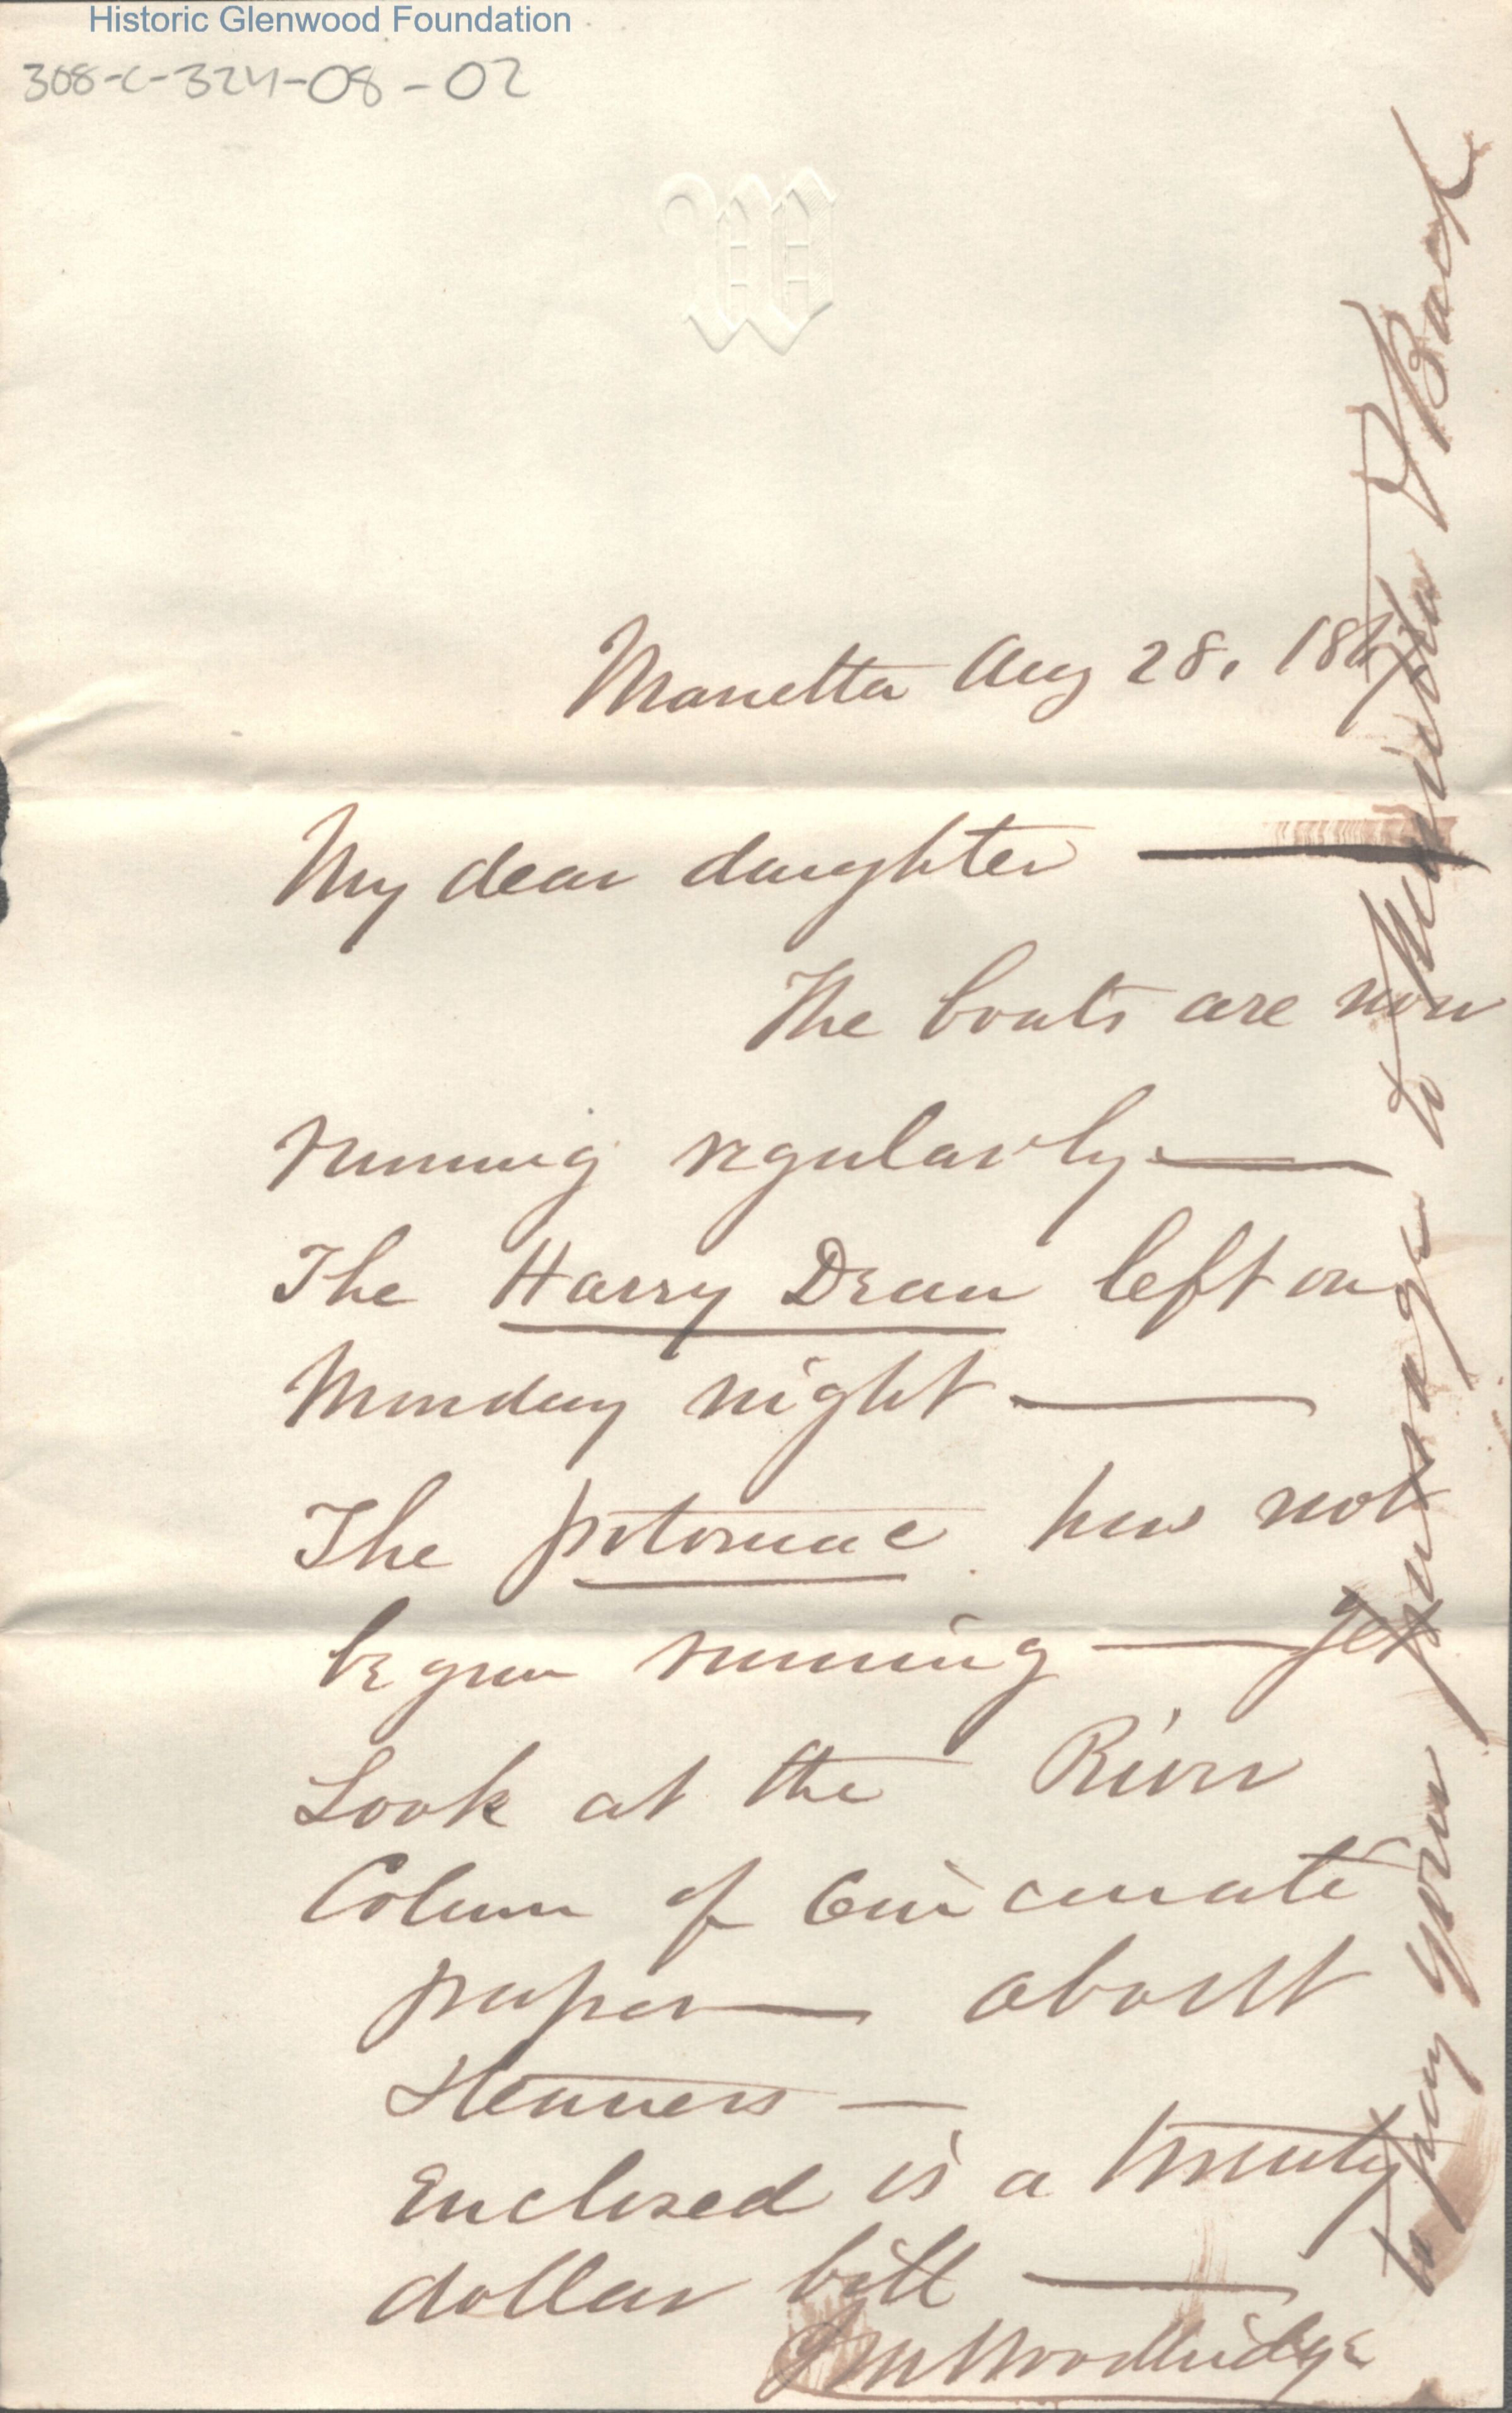 Historic Glenwood Foundation
308-C-324-08-02
W
Marietta Aug 28, 186
My dear daughter —
The boats are now
running regularly —
The Harry Dean left on
Monday night —
The potomac has not
begun running — yet
Look at the River
Column of Cincinnati
paper — about
Steamers —
Enclosed is a twenty
dollar bill —
Woodbridge
to pay your passage to Marietta & Back